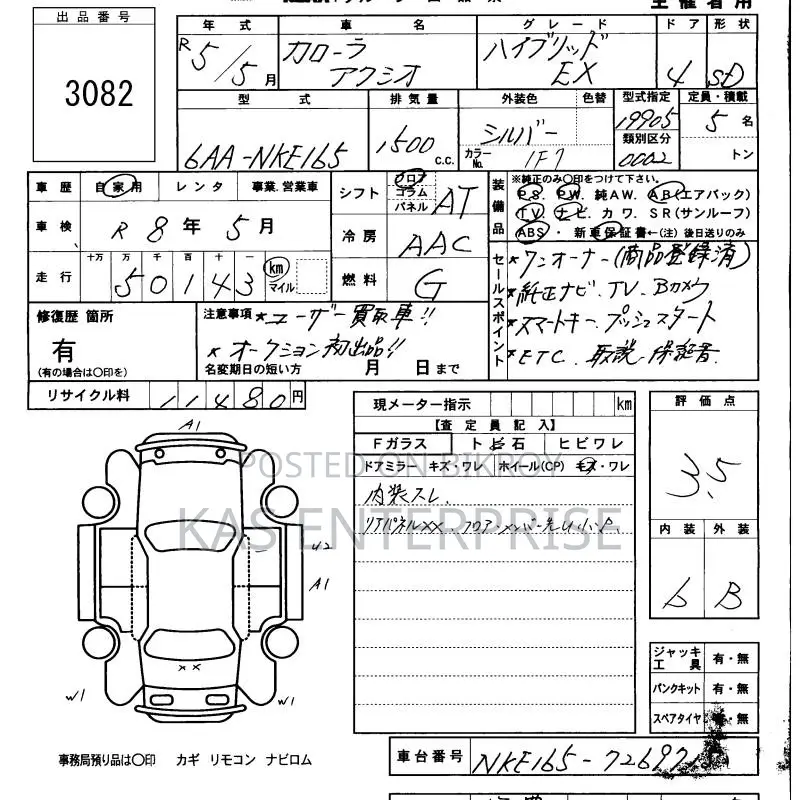 出品番号
3082
年式
車名
グレード
ドア 形状
R5/5月
カローラ
アクシオ
ハイブリッド
EX
4
SD
型式
排気量
外装色
色替
型式指定
定員・積載
6AA-NKE165
1500
c.c.
シルバー
カラーNo.
1F7
19905
類別区分
0002
5名
トン
車歴
自家用
レンタ
事業.営業車
車検
R 8年 5月
走行
十万 万 千 百 十 一
50143
km
マイル
シフト
フロア
コラム
パネル
AT
冷房
AAC
燃料
G
装備品
※純正のみ〇印をつけて下さい。
P.S. P.W. 純AW. A.B(エアバッグ)
T.V ナビ. カワ. S.R(サンルーフ)
ABS・ 新車保証書←(注) 後日送りのみ
セールスポイント
*ワンオーナー(商品登録済)
*純正ナビ.TV.Bカメラ
*スマートキー.プッシュスタート
*ETC. 取説.保証書
修復歴 箇所
有
(有の場合は〇印を)
注意事項
*ユーザー買取車!!
*オークション初出品!!
名変期日の短い方 月 日まで
リサイクル料
11480円
現メーター指示
km
【査定員記入】
Fガラス
トビ石
ヒビワレ
ドアミラー キズ・ワレ ホイール(CP) キズ・ワレ
内装スレ.
リアパネルXX.フロアメンバー先U小P
評価点
3.5
内装
外装
6
B
ジャッキ
工具
有・無
パンクキット
有・無
スペアタイヤ
・無
A1
U2
A1
W1
××
W1
事務局預り品は〇印 カギ リモコン ナビロム
車台番号
NKE165-72697
POSTED ON BIKROY
KAS ENTERPRISE